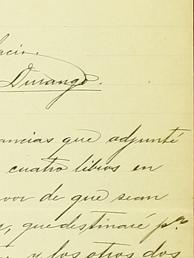 Durango.
ancias que adjunté
cuatro libros en
vor de que sean
, que destinaré p.ª
y los otros dos